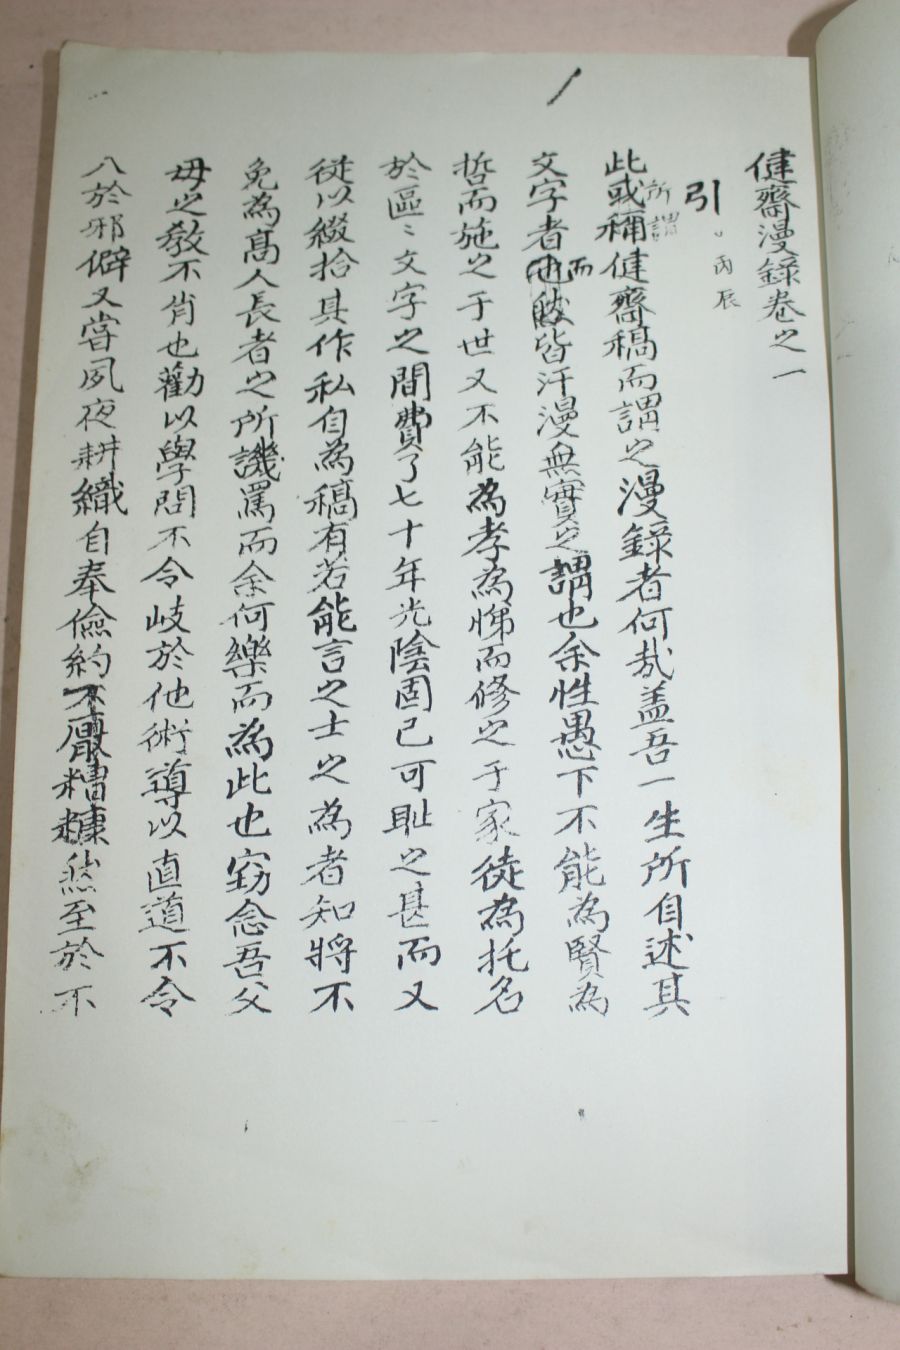 健齋漫錄卷之一
引 丙辰
此或稱所謂健齋稿而謂之漫錄者何哉盖吾一生所自述其
文字者而皆汗漫無實之謂也余性愚下不能為賢為
哲而施之于世又不能為孝為悌而修之于家徒為托名
於區〻文字之間費了七十年光陰固已可耻之甚而又
從以綴拾其作私自為稿有若能言之士之為者知將不
免為高人長者之所譏罵而余何樂而為此也窃念吾父
母之教不肖也勸以學問不令岐於他術導以直道不令
入於邪僻又嘗夙夜耕織自奉儉約不厭糟糠然至於不